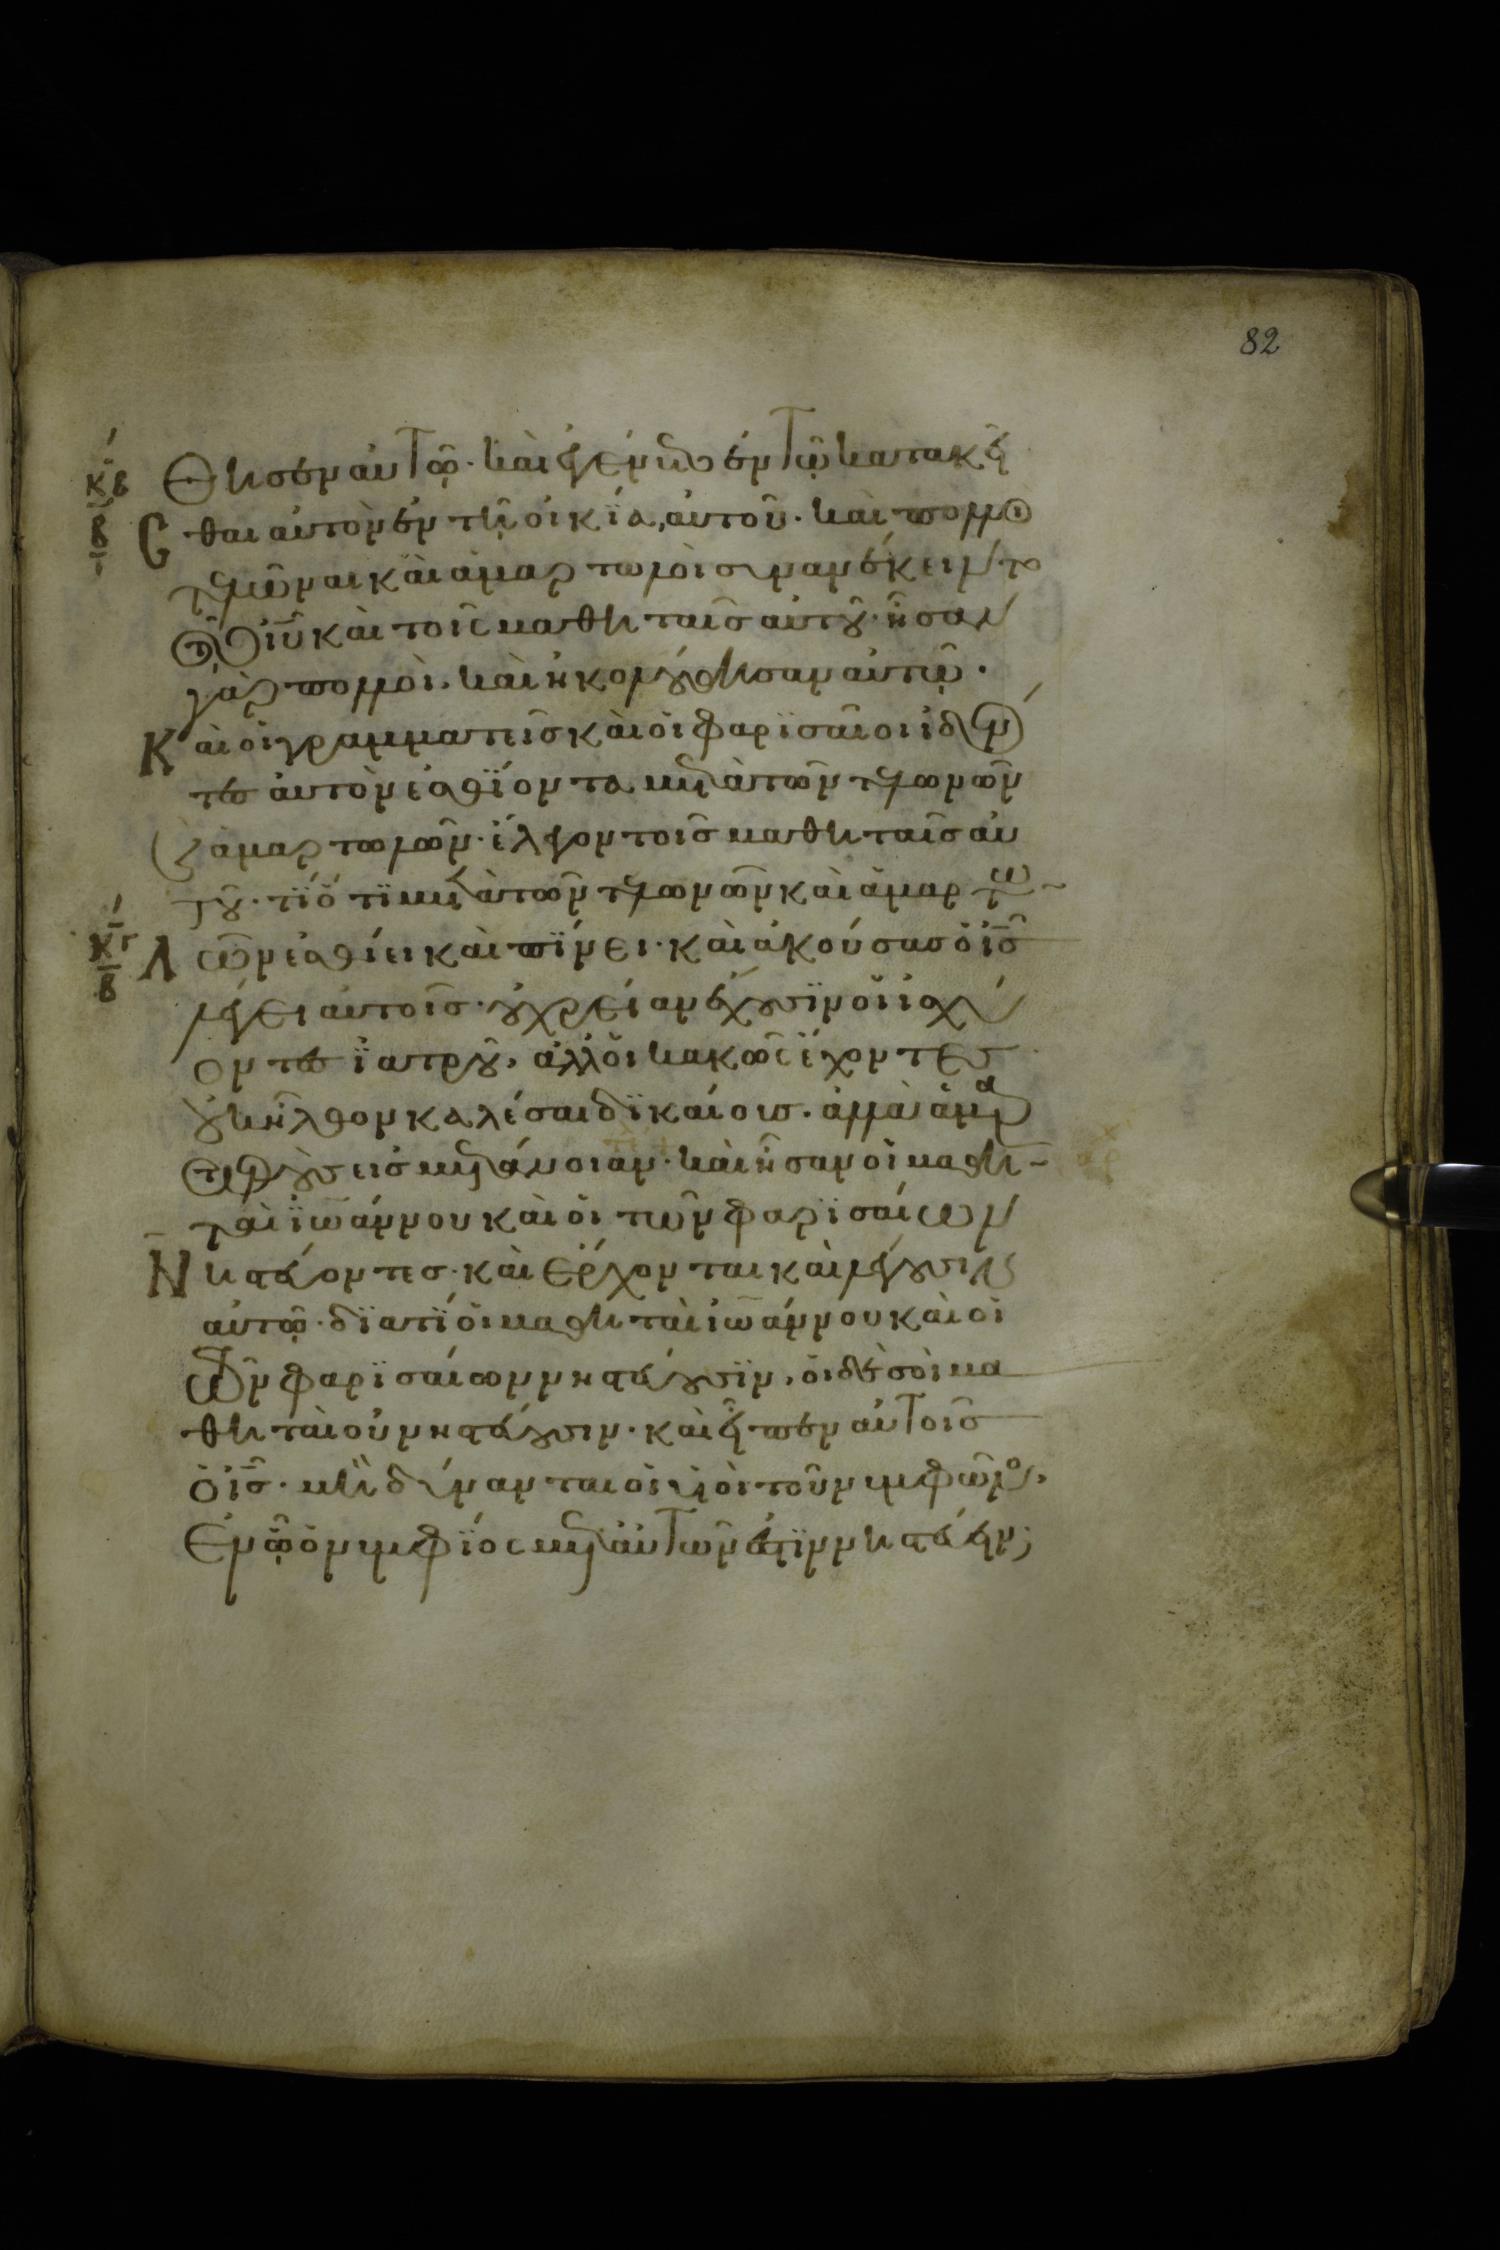 82
κβ θησεν αυτῶ· καὶ ἐγένετο ἐν τῶ κατακεῖ
β σ θαι αυτὸν ἐν τῆ οἰκία αὐτοῦ· καὶ πολλοὶ
τελῶναι καὶ ἁμαρτωλοὶ συνανέκειντο
τῶ ιυ καὶ τοῖς μαθηταῖς αὐτοῦ· ἦσαν
γὰρ πολλοὶ· καὶ ἠκολούθησαν αὐτῶ·
Καὶ οἱ γραμματεῖς καὶ οἱ φαρϊσαῖοι ἰδόν
τες αὐτὸν ἐσθίοντα μετὰ τῶν τελωνῶν
καὶ ἁμαρτωλῶν· ἔλεγον τοῖς μαθηταῖς αὐ
τοῦ· τϊ ὅτϊ μετὰ τῶν τελωνῶν καὶ ἁμαρτω
κγ β λ ῶν ἐσθίει καὶ πίνει· καὶ ἀκούσας ὁ ις
λέγει αὐτοῖς· οὐ χρείαν ἔχουσϊν οἱ ἰσχύ
οντες ϊατροῦ, ἀλλ' οἱ κακῶς ἔχοντες
οὐκ ἦλθον καλέσαι δϊκαίους· ἀλλὰ ἁμαρ
τωλοὺς εἰς μετάνοιαν· καὶ ἦσαν οἱ μαθη
ταὶ ϊωάννου καὶ οἱ τῶν φαρϊσαίων
Ν ηστεύοντες· καὶ ἔρχονται καὶ λέγουσιν
αὐτῶ· δϊατϊ οἱ μαθηταὶ ἰωάννου καὶ οἱ
τῶν φαρϊσαίων νηστεύουσϊν, οἱ δὲ σοὶ μα
θηταὶ οὐ νηστεύουσιν· καὶ εἶπεν αὐτοῖς
ὁ ις· μὴ δύνανται οἱ υἱοὶ τοῦ νυμφῶνος,
ἐν ῶ ὁ νυμφϊος μετ' αὐτῶν ἐστϊν νηστεύειν;